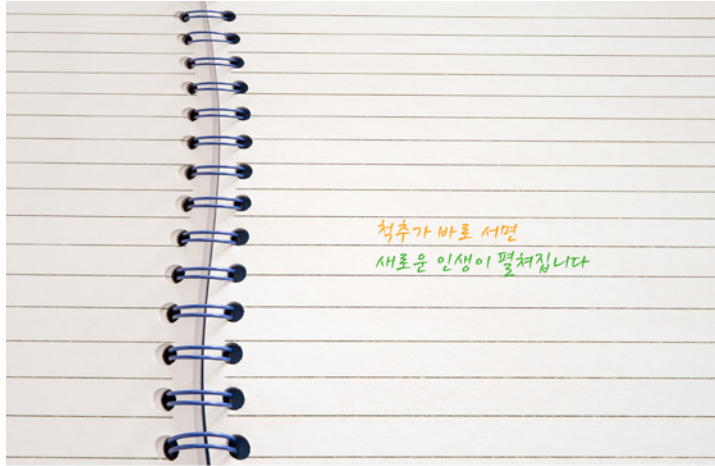 척추가 바로 서면
새로운 인생이 펼쳐집니다